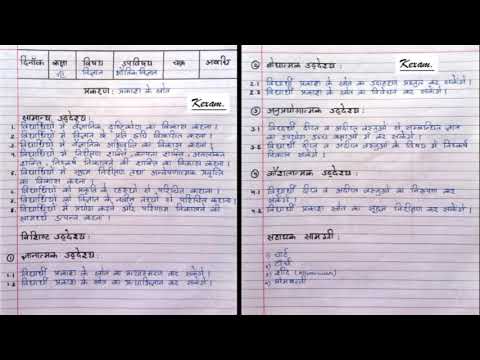 दिनाँक कक्षा विषय उपविषय चक्र अवधि
विज्ञान भौतिक विज्ञान
प्रकरण: प्रकाश के स्रोत
Kexam.
सामान्य उद्देश्य:
1. विद्यार्थियों में वैज्ञानिक दृष्टिकोण का विकास करना।
2. विद्यार्थियों में विज्ञान के प्रति रुचि विकसित करना।
3. विद्यार्थियों में वैज्ञानिक अभिवृत्ति का विकास करना।
4. विद्यार्थियों में निरीक्षण शक्ति, कल्पना शक्ति, अवलोकन
शक्ति, निष्कर्ष निकालने की शक्ति का विकास करना।
5. विद्यार्थियों में सूक्ष्म निरीक्षण तथा अन्वेषणात्मक प्रवृत्ति
का विकास करना।
6. विद्यार्थियों को प्रकृति के रहस्यों से परिचित कराना।
7. विद्यार्थियों को विज्ञान के नवीन तथ्यों से परिचित कराना।
8. विद्यार्थियों में प्रयोग करने और परिणाम निकालने की
सामर्थ्य उत्पन्न करना।
विशिष्ट उद्देश्य:
① ज्ञानात्मक उद्देश्य:
1.1 विद्यार्थी प्रकाश के स्रोत का प्रत्यास्मरण कर सकेंगे।
1.2 विद्यार्थी प्रकाश के स्रोत का प्रत्याभिज्ञान कर सकेंगे।
② बोधात्मक उद्देश्य:
Kexam.
2.1 विद्यार्थी प्रकाश के स्रोत का उदाहरण प्रस्तुत कर सकेंगे।
2.2 विद्यार्थी प्रकाश के स्रोत का विवेचन कर सकेंगे।
③ अनुप्रयोगात्मक उद्देश्य:
3.1 विद्यार्थी दीप्त व अदीप्त वस्तुओं से सम्बन्धित ज्ञान
का उपयोग उच्च कक्षाओं में कर सकेंगे।
3.2 विद्यार्थी दीप्त व अदीप्त वस्तुओं के विषय में निष्कर्ष
निकाल सकेंगे।
④ कौशलात्मक उद्देश्य:
4.1 विद्यार्थी दीप्त व अदीप्त वस्तुओं का निरूपण कर
सकेंगे।
4.2 विद्यार्थी प्रकाश स्रोत का सूक्ष्म निरीक्षण कर सकेंगे।
सहायक सामग्री:
1) चार्ट
2) टॉर्च
3) शीट
4) मोमबत्ती